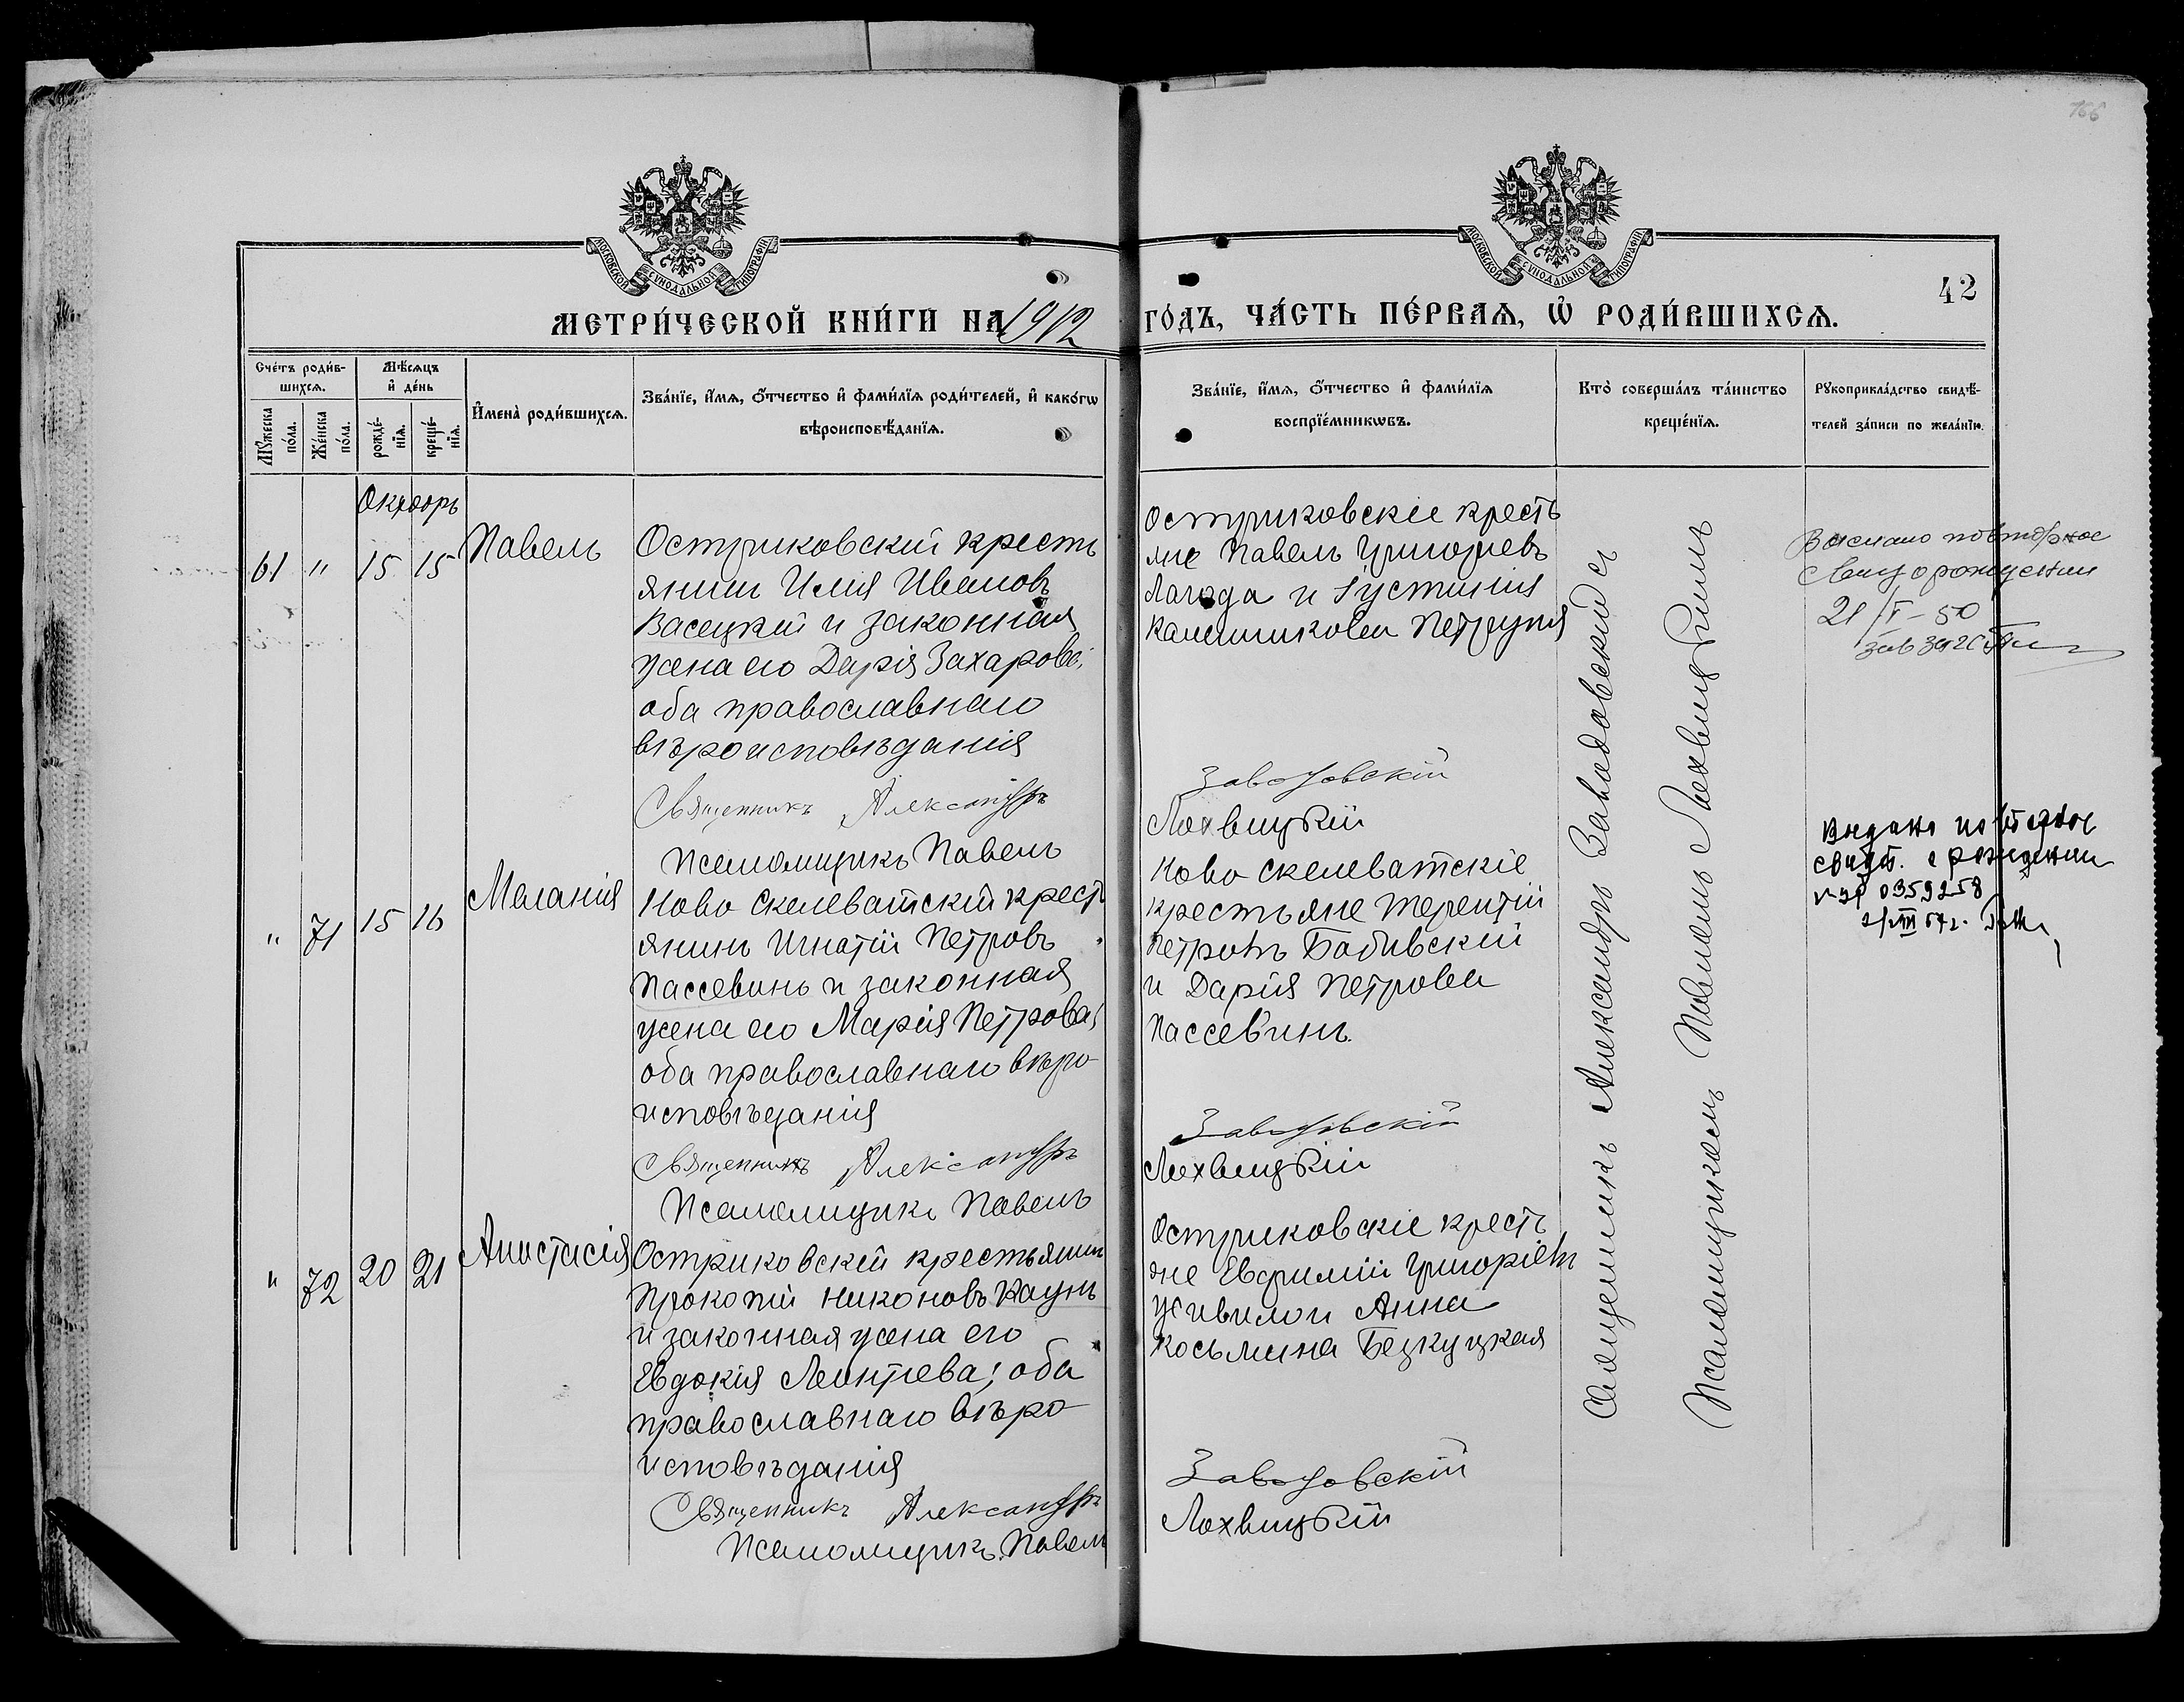 156
МОСКОВСКОЙ СѴНОДАЛЬНОЙ ТИПОГРАФІИ
МОСКОВСКОЙ СѴНОДАЛЬНОЙ ТИПОГРАФІИ
42
МЕТРИ́ЧЕСКОЙ КНИ́ГИ НА 1912 ГО́ДЪ, ЧА́СТЬ ПЕ́РВАЯ, Ѡ РОДИ́ВШИХСЯ.
Сче́тъ роди́в-
шихся.
Мꙋ́жеска
по́ла.
Же́нска
по́ла.
Мѣ́сяцъ
и де́нь
рожде́-
нїя.
креще́-
нїя.
И҆мена̀ роди́вшихся.
Зва́нїе, и҆́мя, о҆́тчество и҆ фами́лїя роди́телей, и҆ како́гѡ
вѣроисповѣ́данїя.
Зва́нїе, и҆́мя, о҆́тчество и҆ фами́лїя
воспрїе́мникѡвъ.
Кто̀ соверша́лъ та́инство
креще́нїя.
Рꙋкоприкла́дство свидѣ́-
телей за́писи по жела́нїю.
Октяорь
61 " 15 15
Павелъ
Остриковскій кресть
янинъ Илія Ивановъ
Васецкій и законная
жена его Дарія Захарова;
оба православнаго
вѣроисповѣданія
Священникъ Александръ
Псаломщикъ Павелъ
Остриковскіе кресть
яне Павелъ Григорьевъ
Лагода и Іустинія
Заводовскій
Лохвицкій
Выслано повторное
свид о рождении
21/I - 50
зав загс
" 71 15 16
Меланія
Ново Скелеватскій крест
янинъ Игнатій Петровъ
Пассевинъ и законная
жена его Марія Петрова;
оба православнаго вѣро
исповѣданія
Священникъ Александръ
Псаломщикъ Павелъ
Ново Скелеватскіе
крестьяне Терентій
Петровъ Бабивскій
и Дарія Петрова
Пассевинъ.
Заводовскій
Лохвицкій
Выдано повторное
свидет. о рождении
0359258
" 72 20 21
Анастасія
Остриковскій крестьянин
Прокопій Никоновъ Каунъ
и законная жена его
Евдокія Леонтьева; оба
православнаго вѣро
исповѣданія
Священникъ Александръ
Псаломщикъ Павелъ
Остриковскіе кресть
яне Евфимій Григоріевъ
и Анна
Косьмина Бецкуцкая
Заводовскій
Лохвицкій
Священникъ Александръ Заводовскій съ
Псаломщикомъ Павломъ Лохвицкимъ